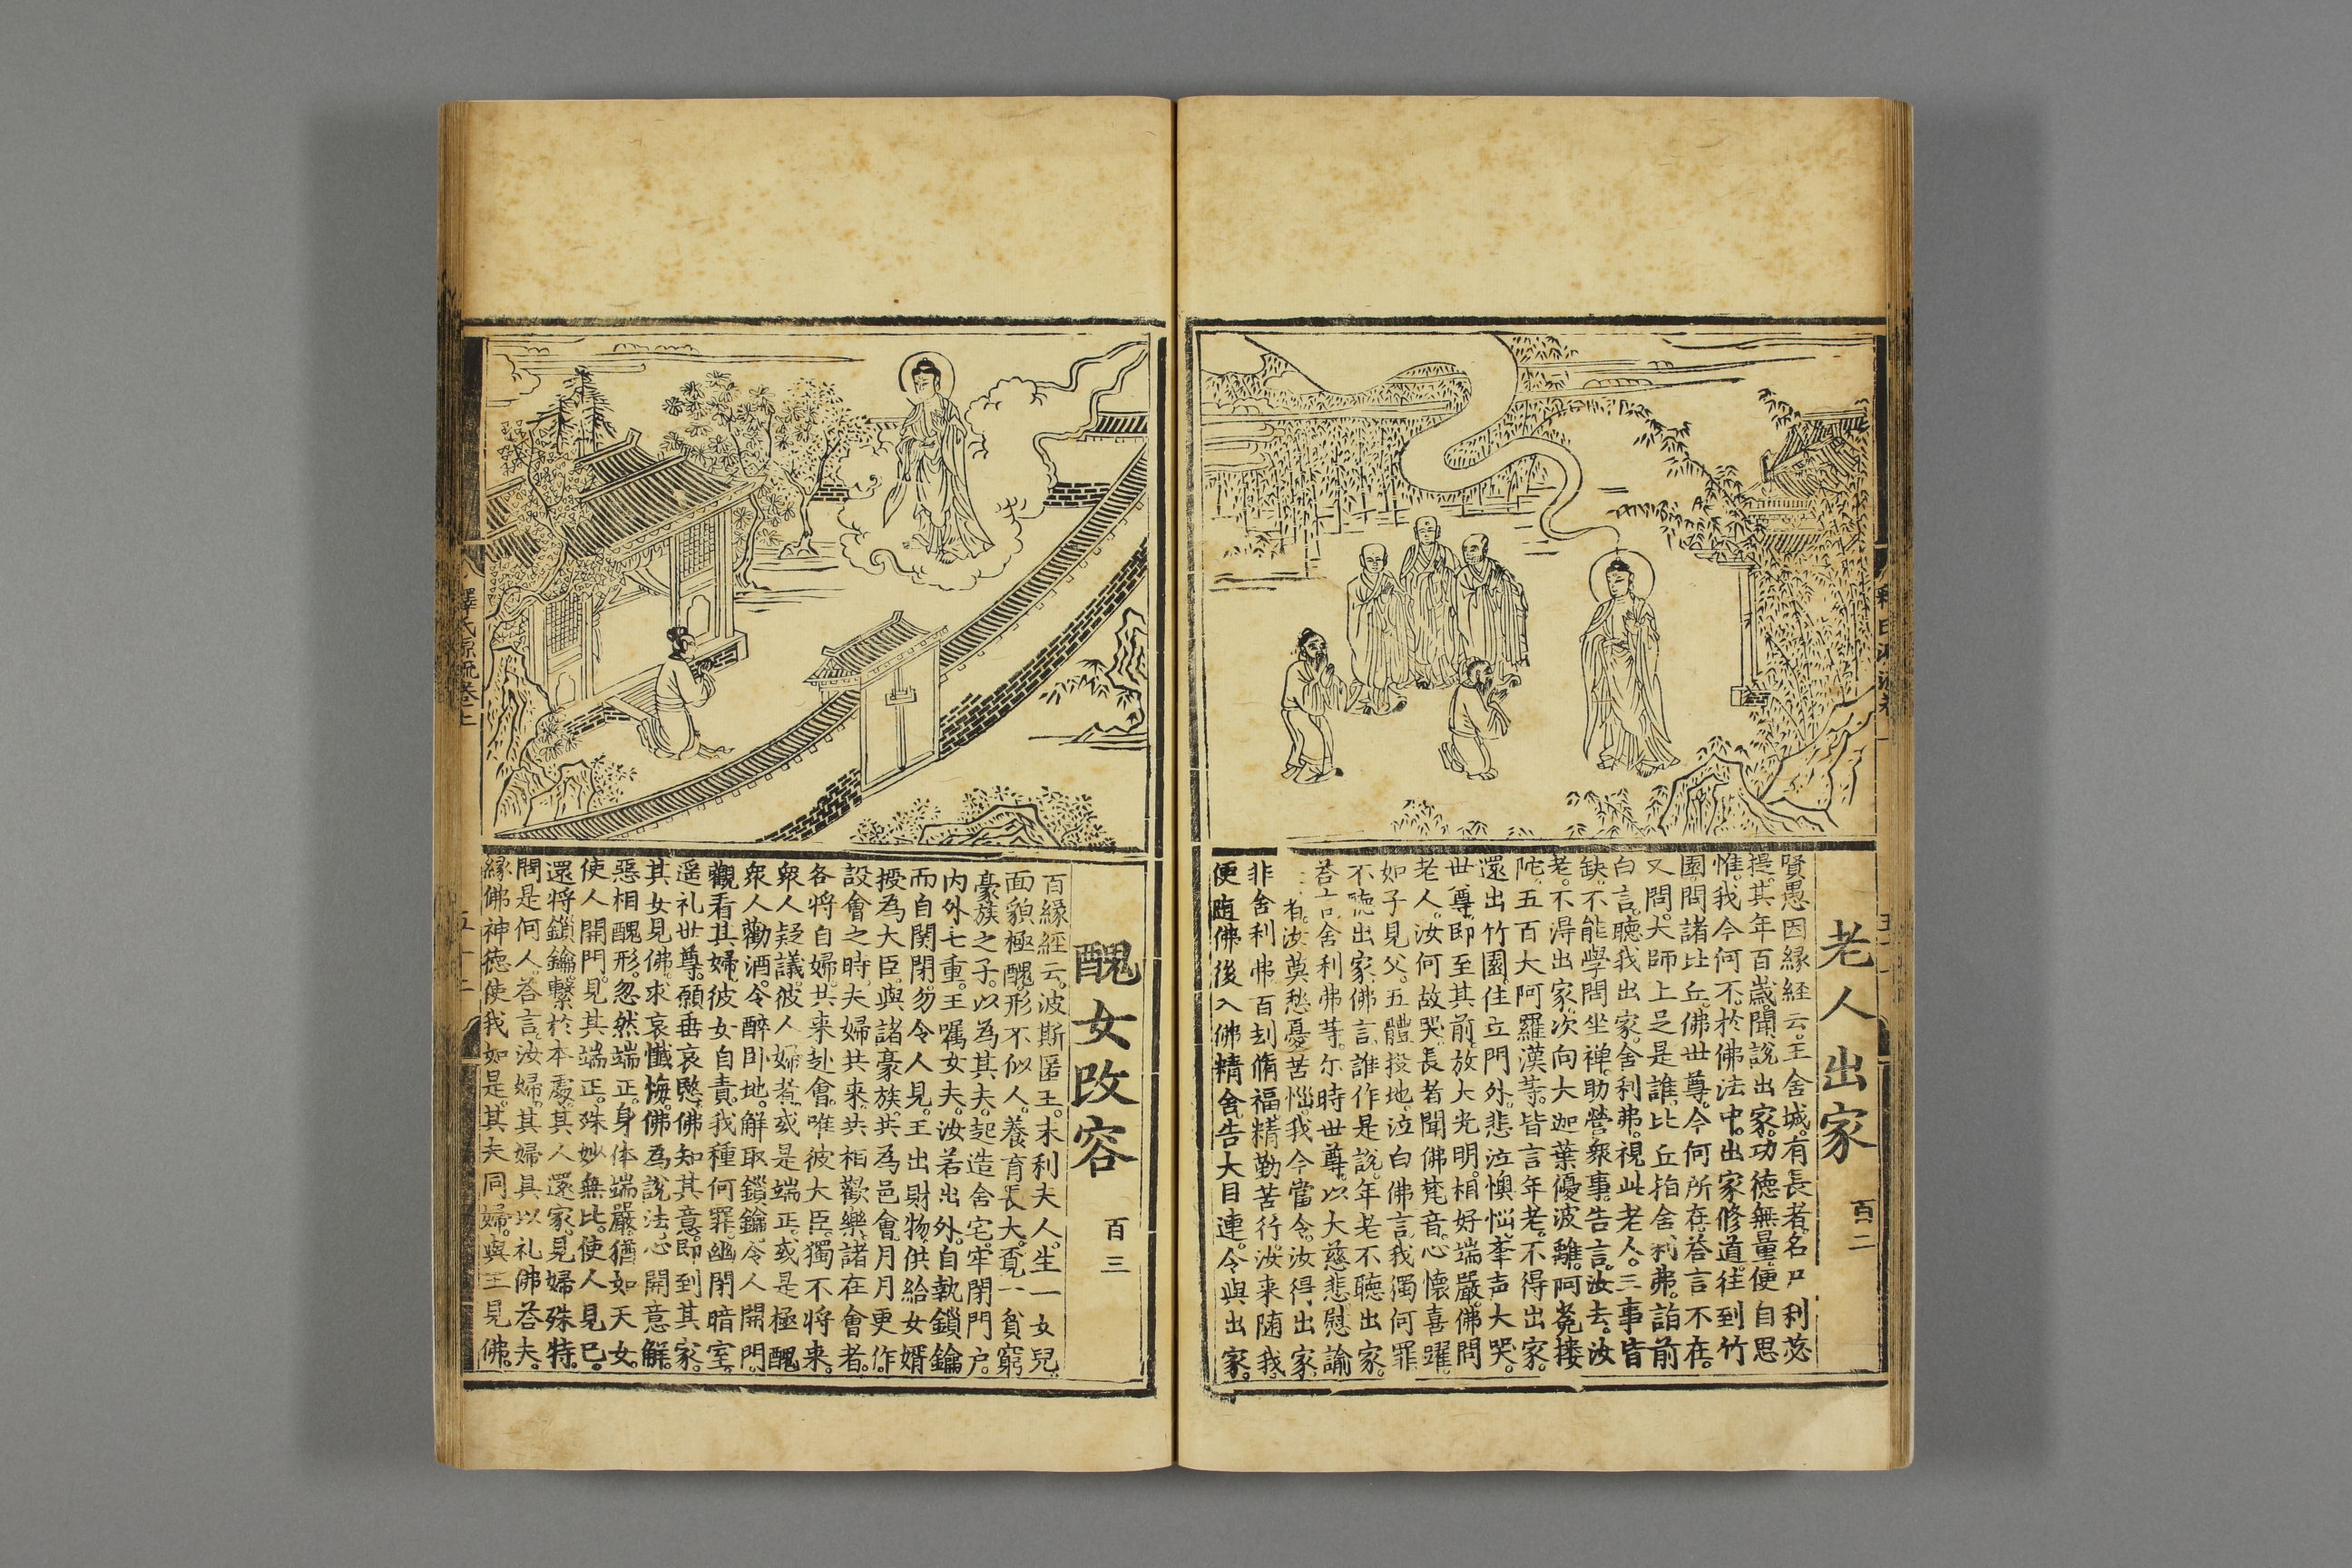 老人出家 百二
賢愚因縁経云。王舍城。有長者。名尸利苾
提。其年百歳。聞說出家。功徳無量。便自思
惟。我今何不。於佛法中。出家修道。往到竹
園。問諸比丘。佛世尊。今何所在。荅言不在。
又問。大師上足是誰。比丘指舍利弗。詣前
白言。聴我出家。舍利弗。視此老人。三事皆
缺。不能學問坐禅。助營衆事。告言。汝去。汝
老。不淂出家。次向大迦葉優波離。阿㝹接
陀。五百大阿羅漢荨。皆言年老。不得出家。
還出竹園。住立門外。悲泣懊惱。峯声大哭。
世尊。即至其前。放大光明。相好端嚴。佛問
老人。汝何故哭。長者聞佛梵音。心懷喜躍。
如子見父。五體投地。泣白佛言。我獨何罪
不聴出家。佛言。誰作是說。年老不聴出家。
荅言。舍利弗荨。尓時世尊。以大慈悲慰諭
者。汝莫愁憂苦惱。我今當令。汝得出家。
非舍利弗。百刼脩福。精勤苦行。汝来随我。
便随佛後。入佛精舍。告大目連。令與出家。
醜女改容 百三
百縁經云。波斯匿王。末利夫人。生一女兒。
面貌極醜。形不似人。養育長大。覔一貧窮
豪族之子。以為其夫。起造舍宅。牢閉門户。
内外七重。王囑女夫。汝若出外。自執鎖鑰
而自関閉。勿令人見。王出財物。供給女婿
授為大臣。與諸豪族。共為邑會。月月更作
設會之時。夫婦共来。共相歡樂。諸在會者。
各将自婦。共来赴會。唯彼大臣。獨不将来。
衆人疑議。彼人婦者。或是端正。或是極醜
衆人勸酒。令醉卧地。解取鎖鑰。令人開門。
觀看其婦。彼女自責。我種何罪。幽閉暗室。
遥礼世尊。願垂哀愍。佛知其意。即到其家。
其女見佛。求哀懺悔。佛為說法。心開意解。
惡相醜形。忽然端正。身体端嚴。猶如天女。
使人開門。見其端正。殊妙無比。使人見已。
還将鎖鑰。繫於本處。其人還家。見婦殊特。
問是何人。荅言。汝婦。其婦具以礼佛荅夫。
縁佛神徳。使我如是。其夫同婦。與王見佛。
釋氏源流卷上